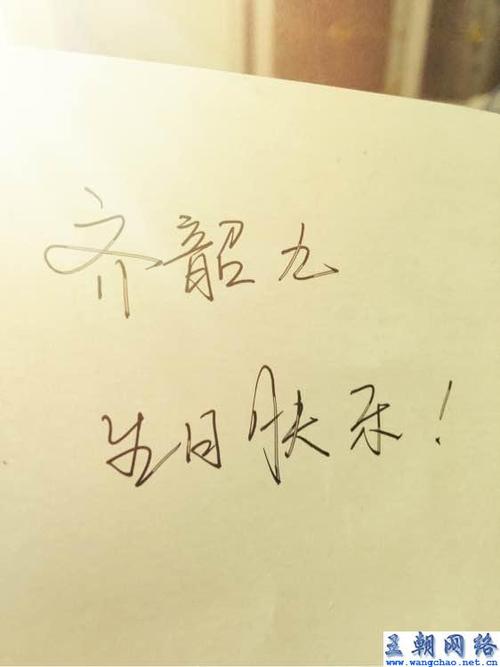 齐韶九
生日快乐！
王朝网络
www.wangchao.net.cn